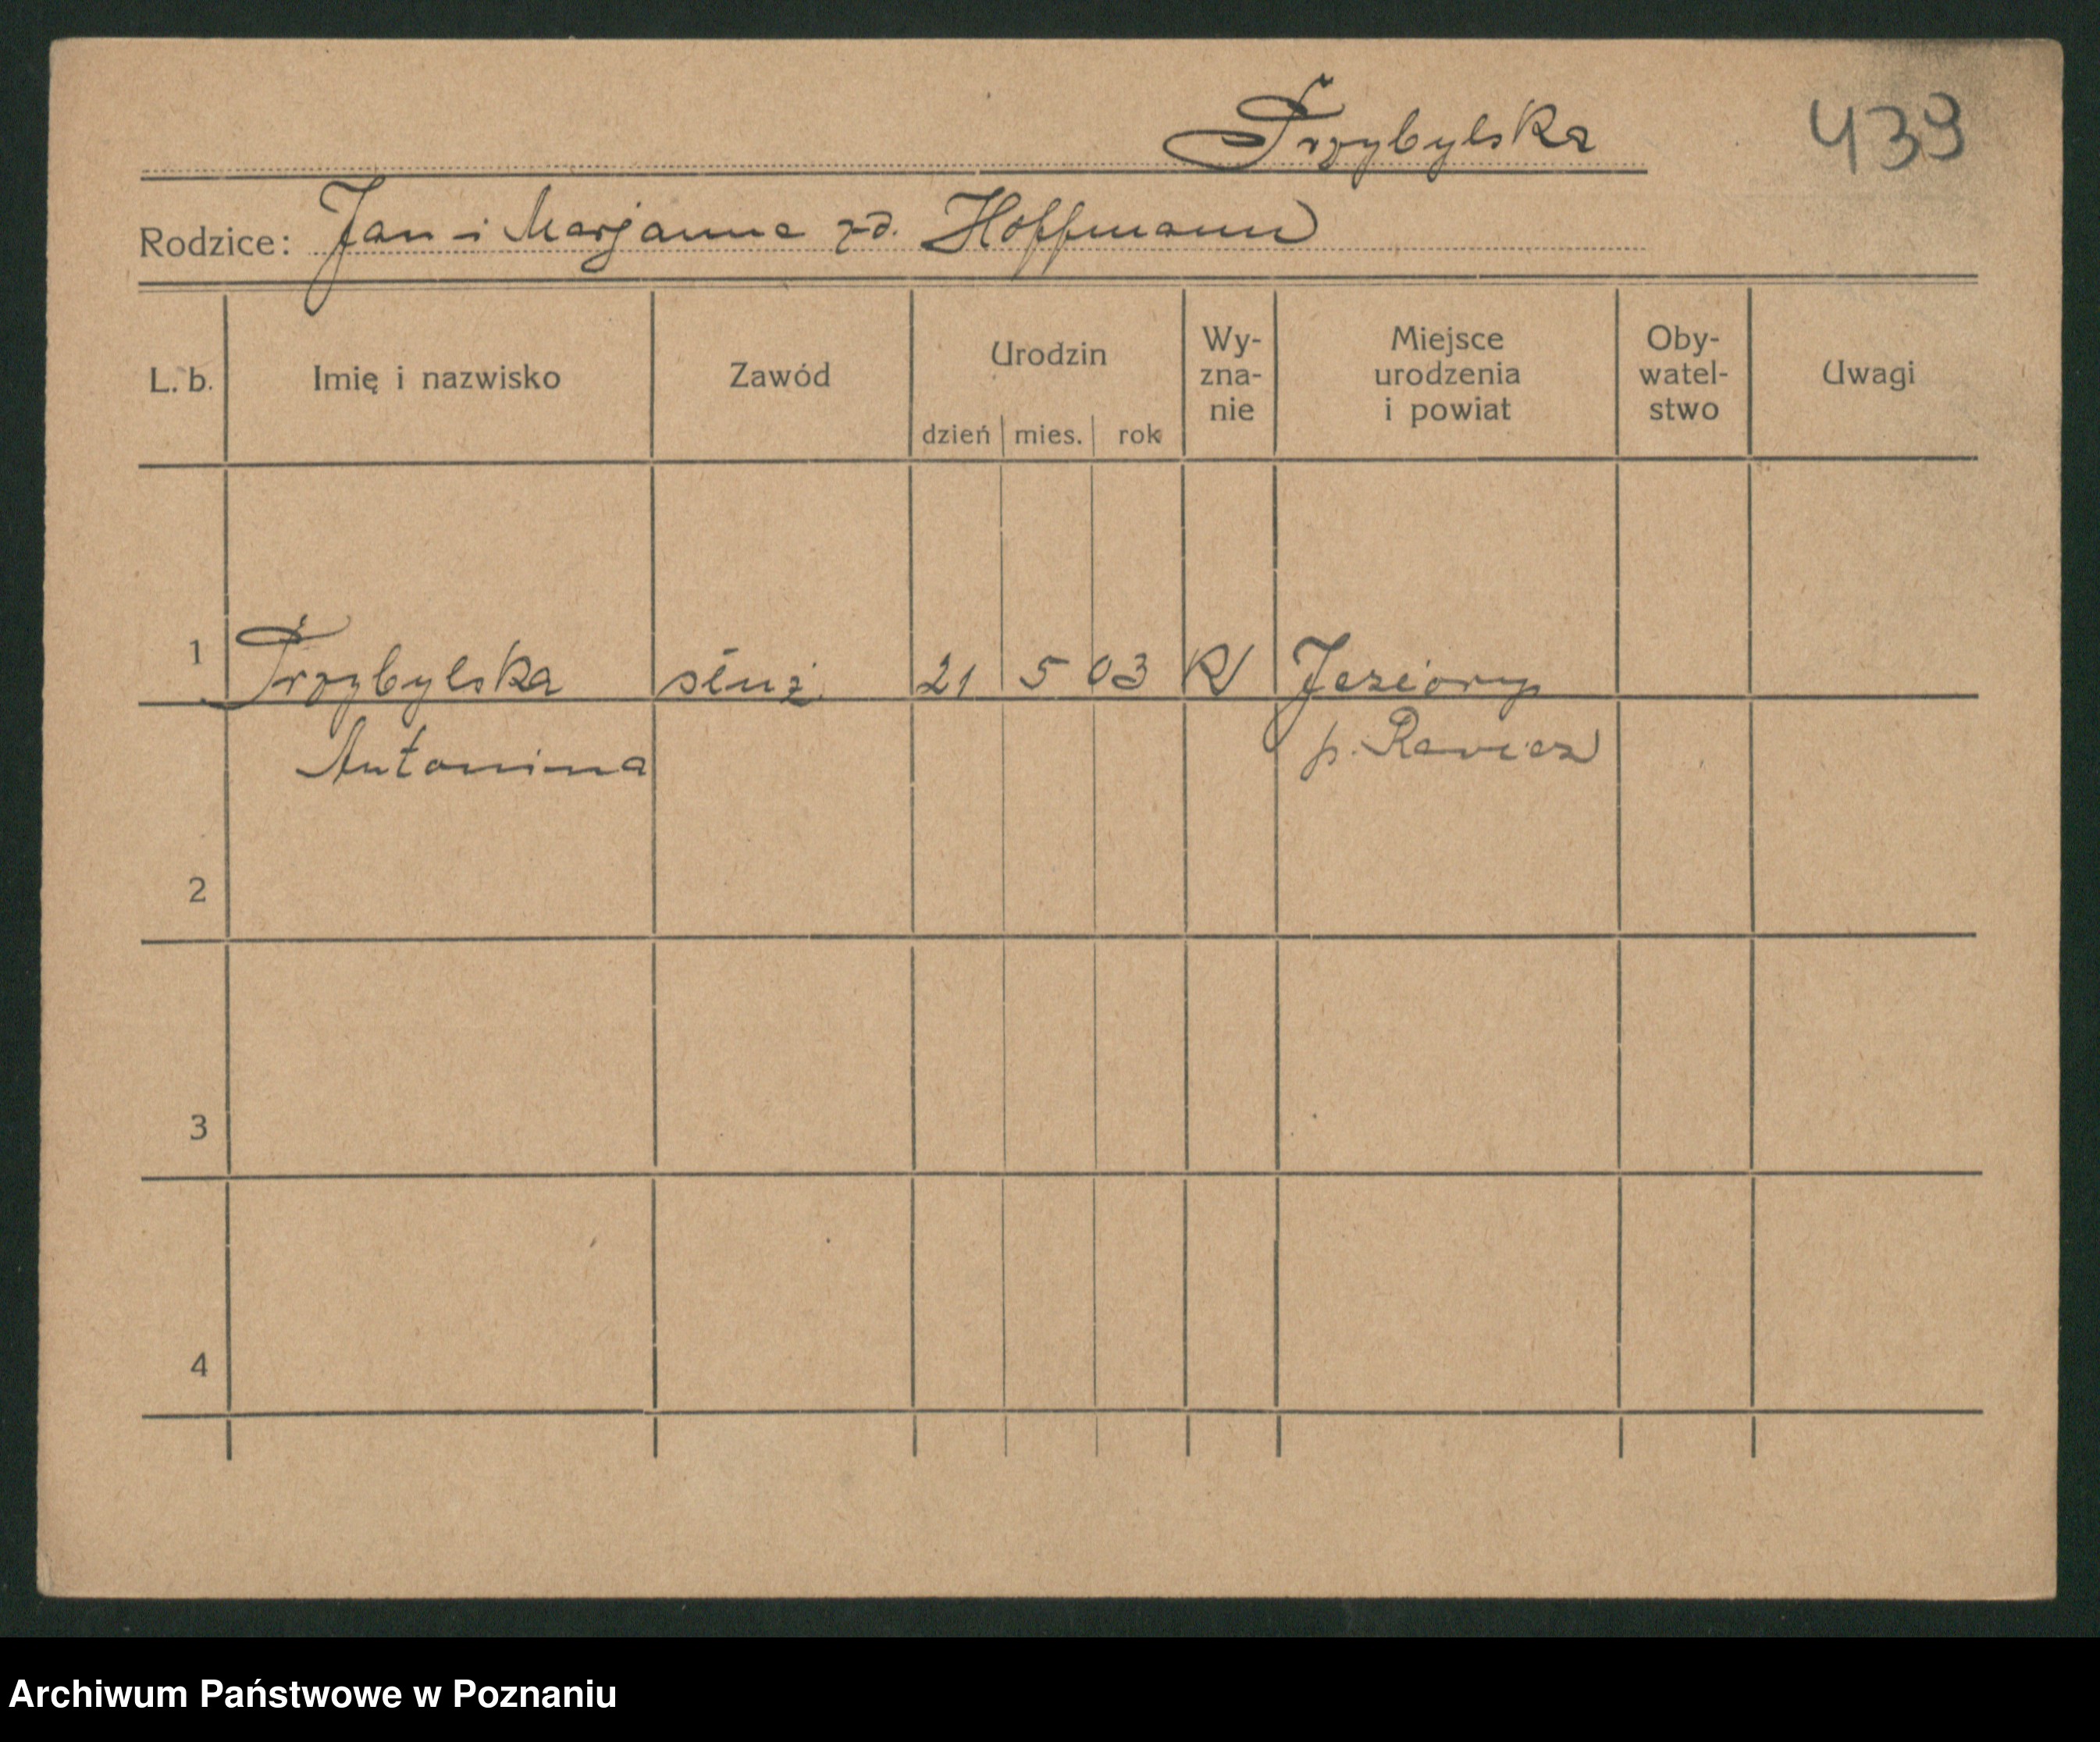 Przybylska 439
Rodzice: Jan i Marjanna zd. Hoffmann
L. b. Imię i nazwisko Zawód Urodzin dzień mies. rok Wy-zna-nie Miejsce urodzenia i powiat Oby-watel-stwo Uwagi
1 Przybylska służ. 21 5 03 K Jeziory
Antonina p. Rawicz
2
3
4
Archiwum Państwowe w Poznaniu